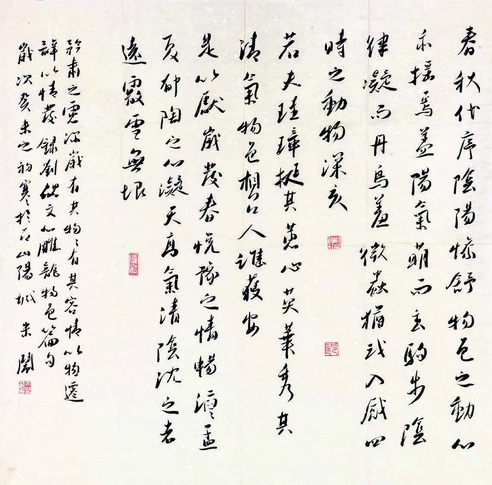 春秋代序陰陽慘舒物色之動心
亦搖焉蓋陽氣萌而玄駒步陰
律凝而丹鳥羞微蟲猶或入感四
時之動物深矣
若夫珪璋挺其惠心英華秀其
清氣物色相召人誰獲安
是以獻歲發春悅豫之情暢滔滔孟
夏郁陶之心凝天高氣清陰沈之志
遠霰雪無垠
矜肅之慮深歲有其物物有其容情以物遷
辭以情發錄劉勰文心雕龍物色篇句
歲次癸未之初寒於石山陽城